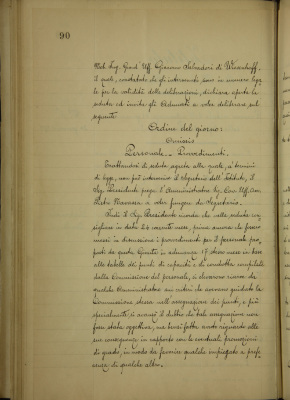 90
Nob. Sig. Grand. Uff. Giacomo Salvadori di Wiesenhoff,
il quale, constatato che gli intervenuti sono in numero lega
le per la validità delle deliberazioni, dichiara aperta la
seduta ed invita gli adunati a voler deliberare sul
seguente
Ordine del giorno:
Omissis
Personale – Provvedimenti.
Trattandosi di seduta segreta alla quale, a termini
di legge, non può intervenire il Segretario dell'Istituto, il
Sig. Presidente prega l'Amministratore Sig. Cav. Uff. Don
a voler fungere da Segretario.
Indi il Sig. Presidente ricorda che nella seduta con
sigliare in data 24 corrente mese, prima ancora che fosse
messi in discussione i provvedimenti per il personale pro
posti da questa Giunta in adunanza 17 stesso mese in base
alle tabelle dei punti di capacità e di condotta compilate
dalla Commissione del personale, si elevarono riserve da
qualche Amministratore sui criteri che avevano guidato la
Commissione stessa nell'assegnazione dei punti, e più
specialmente, si avanzò il dubbio che tale assegnazione non
fosse stata oggettiva, ma bensì fatta avuto riguardo alle
sue conseguenze in rapporto con le eventuali promozioni
di grado, in modo da favorire qualche impiegato a prefe
renza di qualche altro.